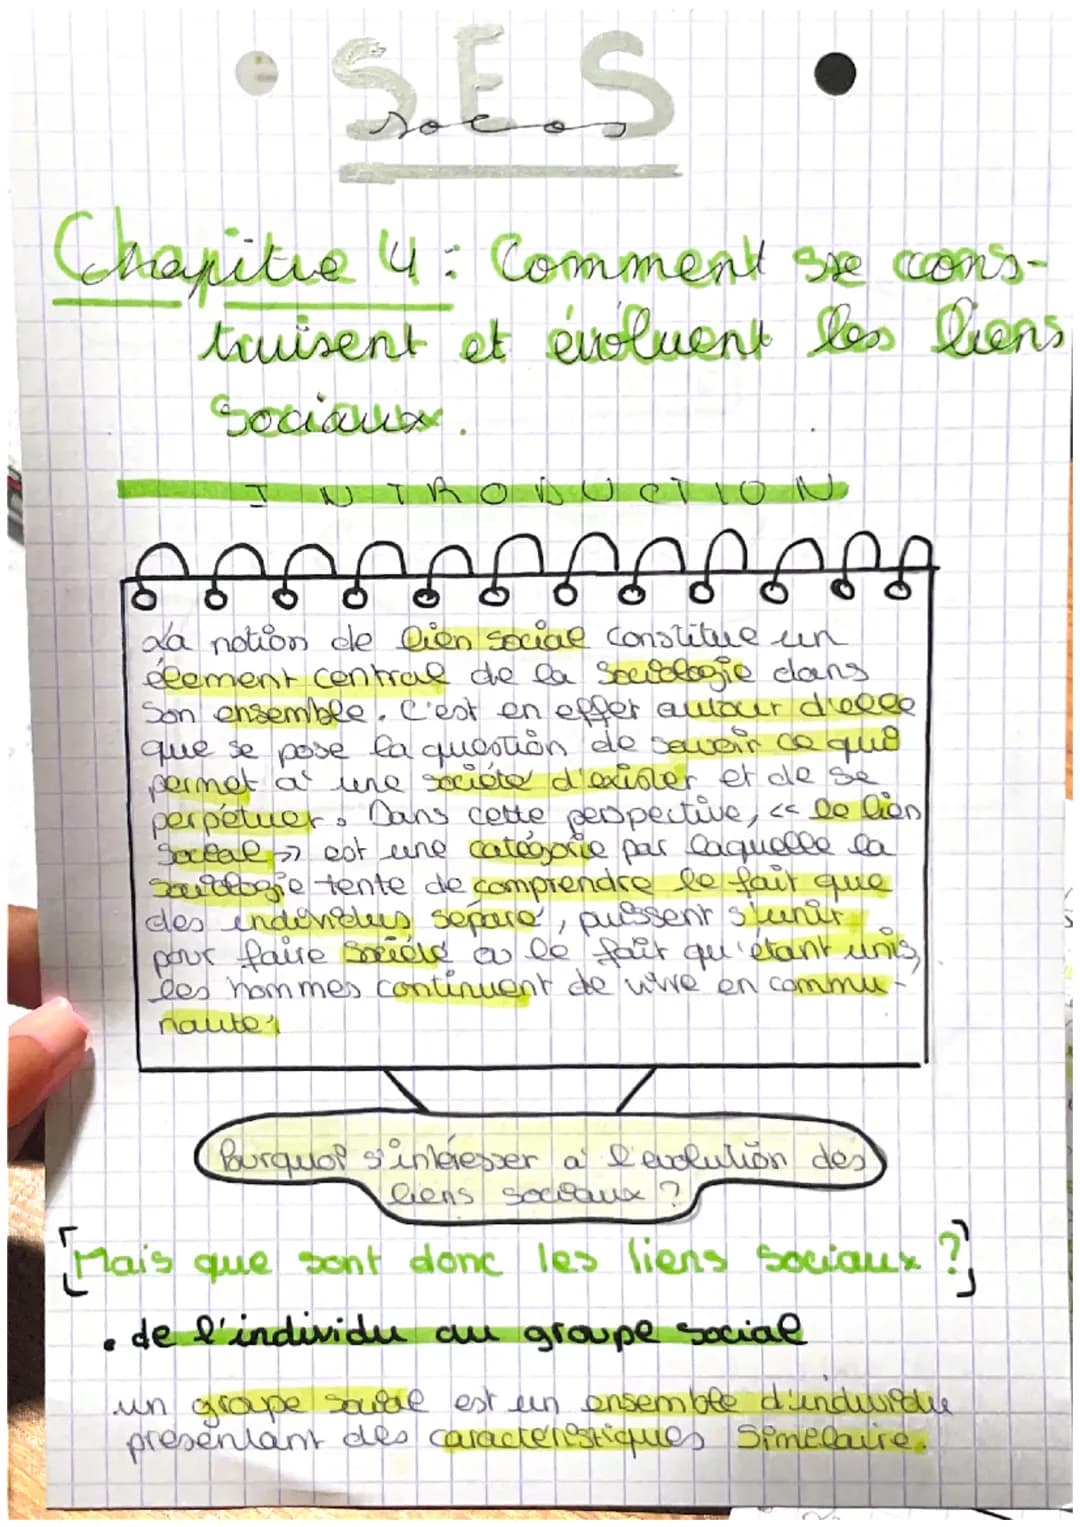 SES
socos
Chapitre 4 : Comment se cons-
truisent et évoluent les liens
sociaux.
INTRODUCTION
La notion de lien social constitue un
élement central de la sociologie dans
son ensemble. C'est en effet autour d'elle
que se pose la question de savoir ce qui
permet à une société d'exister et de se
perpétuer. Dans cette perspective, << le lien
social >> est une catégorie par laquelle la
sociologie tente de comprendre le fait que
des individus séparé, puissent s'unir
pour faire société ou le fait qu'étant unis,
les hommes continuent de vivre en commu-
nauté.
Pourquoi s'intéresser à l'évolution des
liens sociaux ?
[Mais que sont donc les liens sociaux ?]
• de l'individu au groupe social
un groupe social est un ensemble d'individu
présentant des caractéristiques similaire.